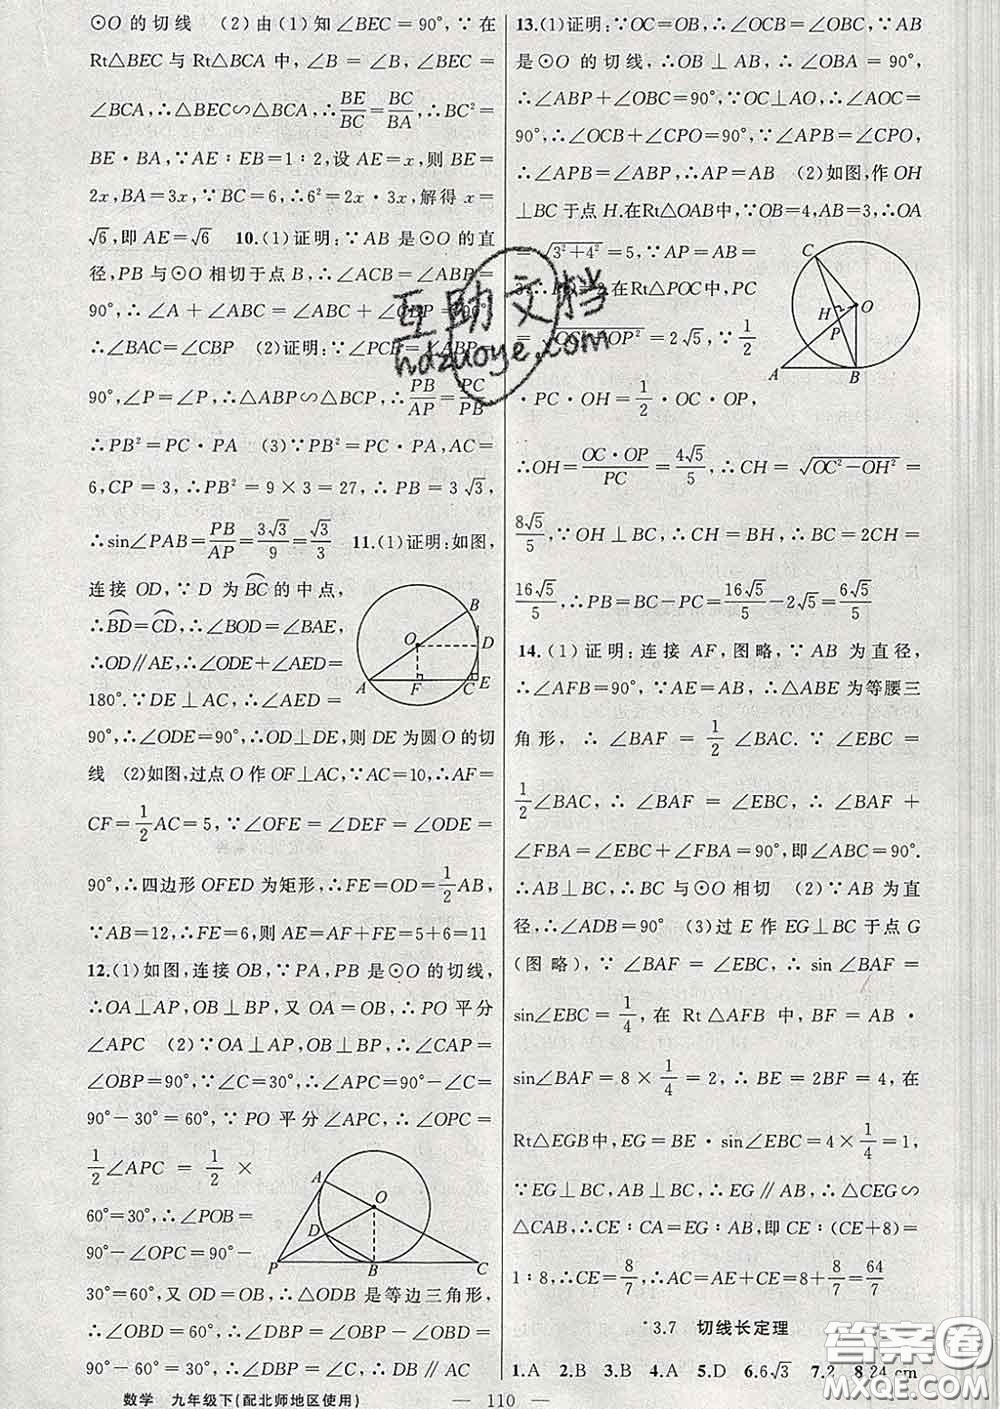 ⊙O 的切线　(2)由(1)知∠BEC=90°,∵在
Rt△BEC与Rt△BCA中,∠B=∠B,∠BEC=
∠BCA,∴△BEC∽△BCA,∴BE/BC=BC/BA,∴BC²=
BE·BA,∵AE∶EB=1∶2,设AE=x,则BE=
2x,BA=3x,∵BC=6,∴6²=2x·3x,解得x=
√6,即AE=√6　10.(1)证明:∵AB是⊙O的直
径,PB与⊙O相切于点B,∴∠ACB=∠ABP=
90°,∴∠A+∠ABC=∠ABC+∠CBP=90°,
∴∠BAC=∠CBP　(2)证明:∵∠PCB=∠ABP=
90°,∠P=∠P,∴△ABP∽△BCP,∴PB/AP=PC/PB
∴PB²=PC·PA　(3)∵PB²=PC·PA,AC=
6,CP=3,∴PB²=9×3=27,∴PB=3√3,
∴sin∠PAB=PB/AP=3√3/9=√3/3　11.(1)证明:如图,
连接OD,∵D为BC的中点,
∴BD=CD,∴∠BOD=∠BAE,
∴OD∥AE,∴∠ODE+∠AED=
180°.∵DE⊥AC,∴∠AED=
90°,∴∠ODE=90°,∴OD⊥DE,则DE为圆O的切
线　(2)如图,过点O作OF⊥AC,∵AC=10,∴AF=
CF=1/2AC=5,∵∠OFE=∠DEF=∠ODE=
90°,∴四边形OFED为矩形,∴FE=OD=1/2AB,
∵AB=12,∴FE=6,则AE=AF+FE=5+6=11
12.(1)如图,连接OB,∵PA,PB是⊙O的切线,
∴OA⊥AP,OB⊥BP,又OA=OB,∴PO平分
∠APC　(2)∵OA⊥AP,OB⊥BP,∴∠CAP=
∠OBP=90°,∵∠C=30°,∴∠APC=90°-∠C=
90°-30°=60°,∵PO平分∠APC,∴∠OPC=
1/2∠APC=1/2×
60°=30°,∴∠POB=
90°-∠OPC=90°-
30°=60°,又OD=OB,∴△ODB是等边三角形,
∴∠OBD=60°,∴∠DBP=∠OBP-∠OBD=
90°-60°=30°,∴∠DBP=∠C,∴DB∥AC
B
O
D
A
F
C
E
A
O
D
P
B
C
13.(1)证明:∵OC=OB,∴∠OCB=∠OBC,∵AB
是⊙O的切线,∴OB⊥AB,∴∠OBA=90°,
∴∠ABP+∠OBC=90°,∵OC⊥AO,∴∠AOC=
90°,∴∠OCB+∠CPO=90°,∵∠APB=∠CPO,
∴∠APB=∠ABP,∴AP=AB　(2)如图,作OH
⊥BC于点H.在Rt△OAB中,∵OB=4,AB=3,∴OA
=√3²+4²=5,∵AP=AB=
在Rt△POC中,PC
=2√5,∵1/2
·PC·OH=1/2·OC·OP,
∴OH=OC·OP/PC=4√5/5,∴CH=√OC²-OH²=
8√5/5,∵OH⊥BC,∴CH=BH,∴BC=2CH=
16√5/5,∴PB=BC-PC=16√5/5-2√5=6√5/5
C
H
O
P
A
B
14.(1)证明:连接AF,图略,∵AB为直径,
∴∠AFB=90°,∵AE=AB,∴△ABE为等腰三
角形,∴∠BAF=1/2∠BAC.∵∠EBC=
1/2∠BAC,∴∠BAF=∠EBC,∴∠BAF+
∠FBA=∠EBC+∠FBA=90°,即∠ABC=90°.
∴AB⊥BC,∴BC与⊙O相切　(2)∵AB为直
径,∴∠ADB=90°　(3)过E作EG⊥BC于点G
(图略),∵∠BAF=∠EBC,∴sin∠BAF=
sin∠EBC=1/4,在Rt△AFB中,BF=AB·
sin∠BAF=8×1/4=2,∴BE=2BF=4,在
Rt△EGB中,EG=BE·sin∠EBC=4×1/4=1,
∵EG⊥BC,AB⊥BC,∴EG∥AB,∴△CEG∽
△CAB,∴CE∶CA=EG∶AB,即CE∶(CE+8)=
1∶8,∴CE=8/7,∴AC=AE+CE=8+8/7=64/7
3.7　切线长定理
1.A　2.B　3.B　4.A　5.D　6.6√3　7.2　8.24 cm
数学　九年级下(配北师地区使用)　— 110 —
互助文档
hdzuoye.com
答案圈
MXQE.COM